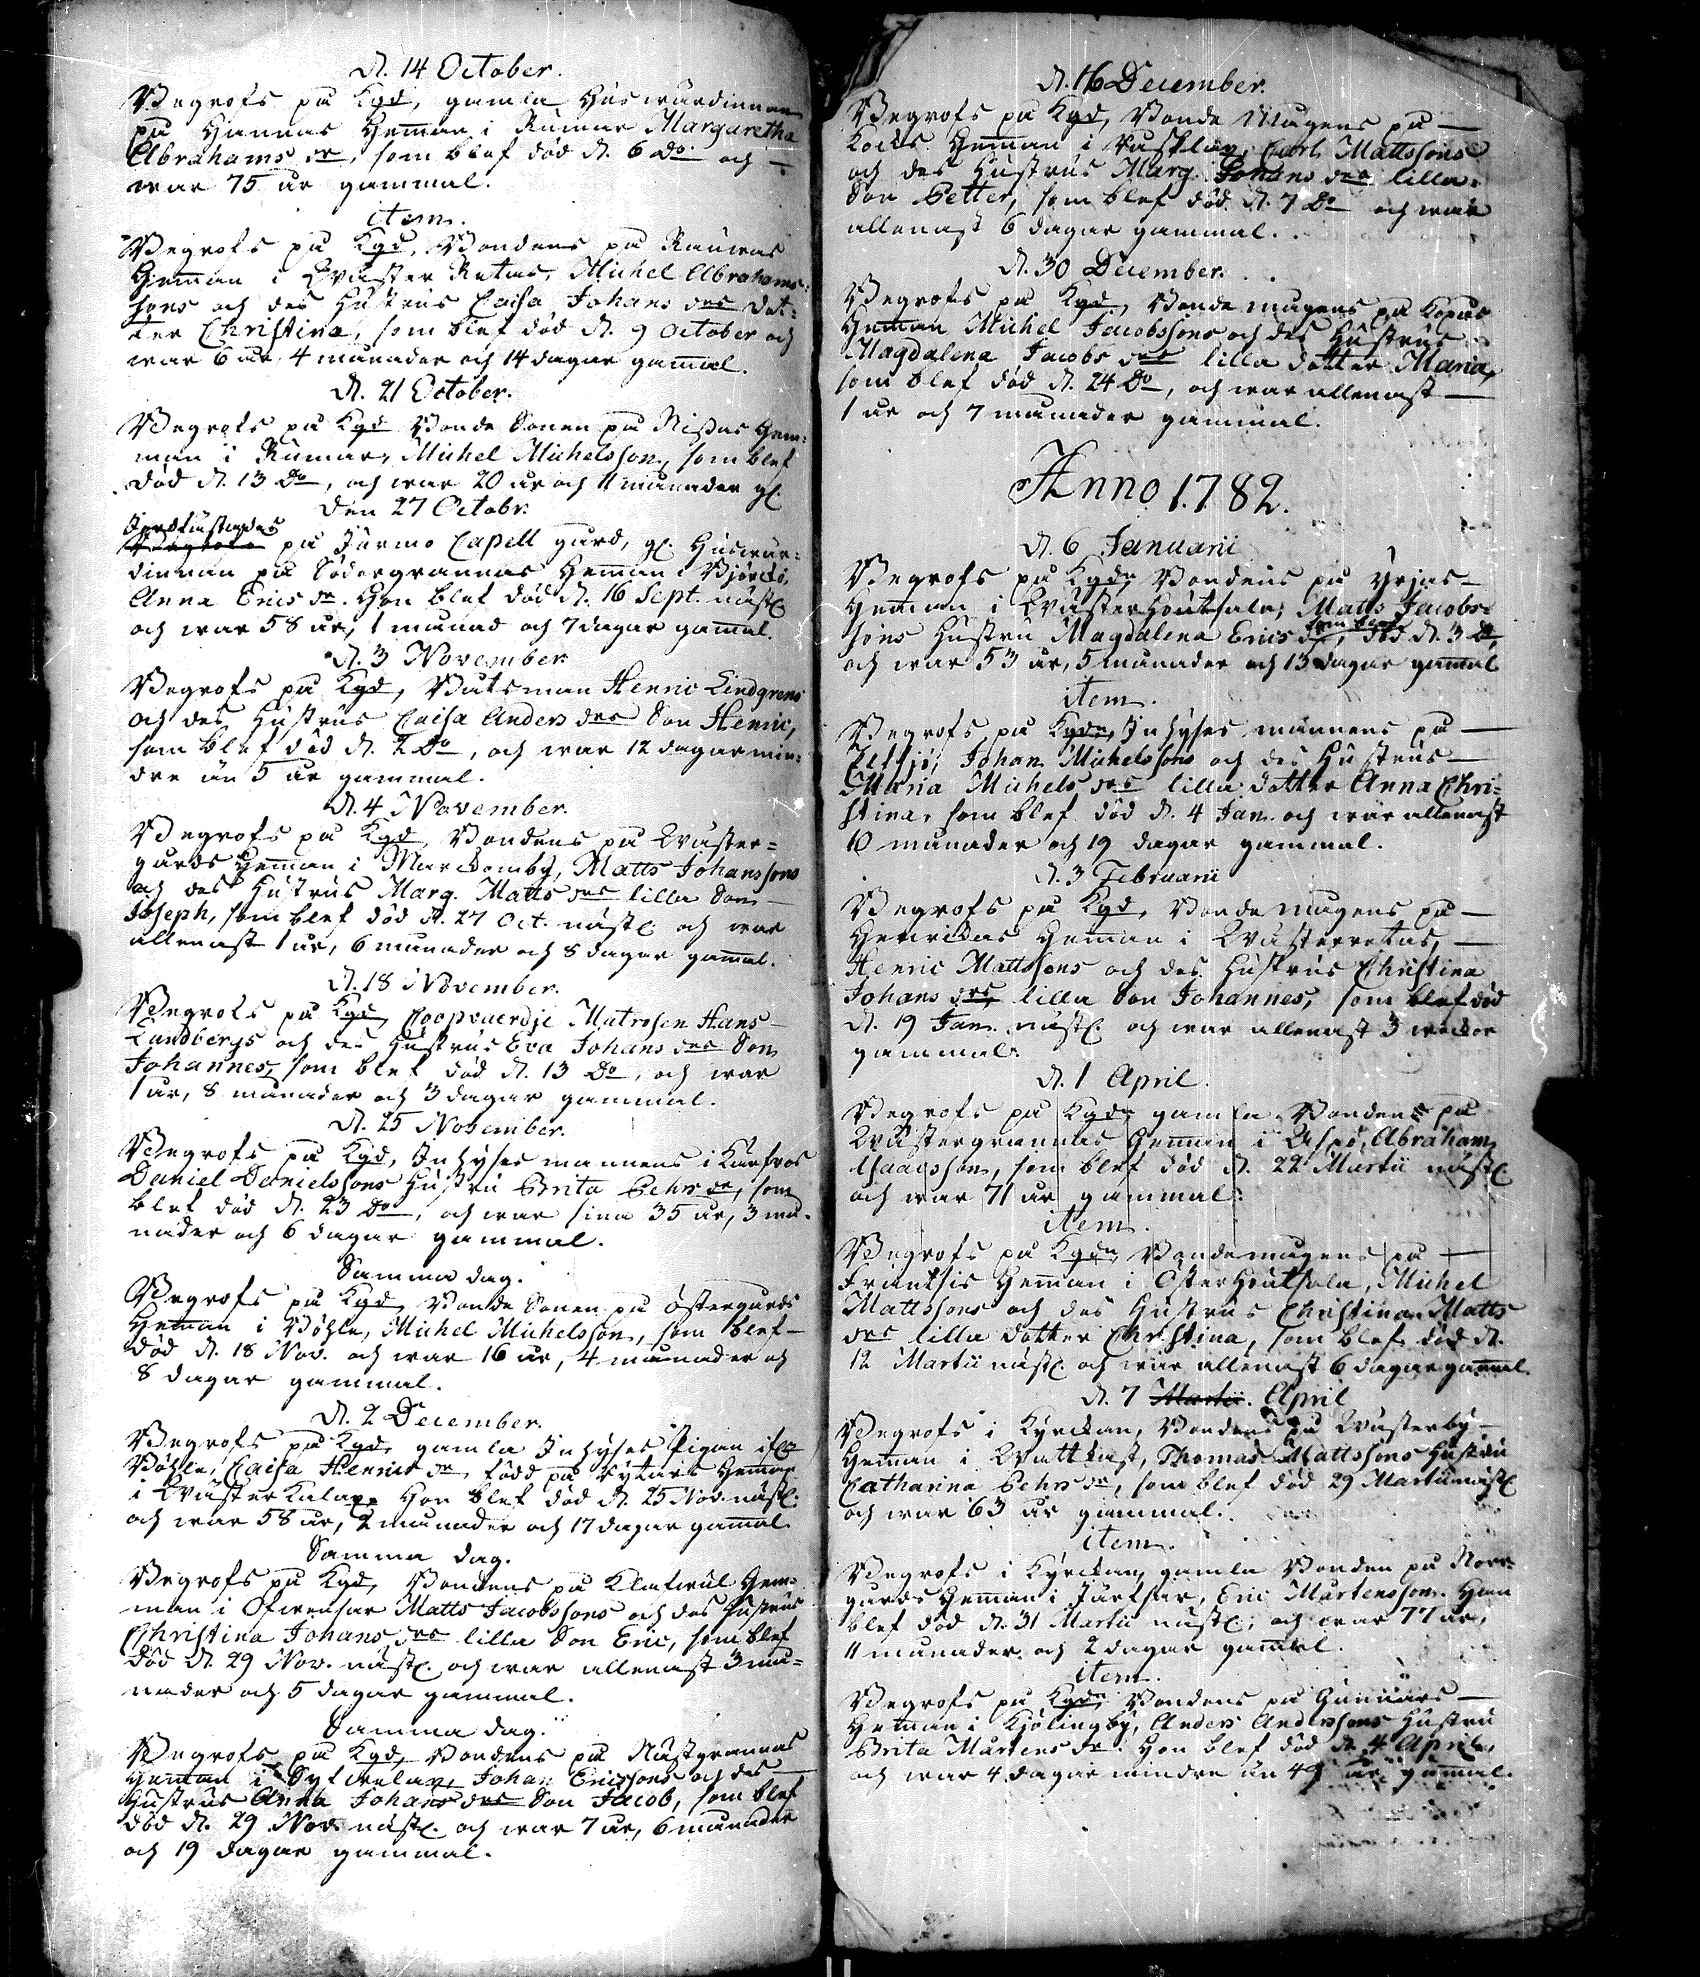 d. 14 October.
Begrofs på Kgd, gamla Huswärdinnan
på Hannas Heman i Rumar Margaretha
Abrahams dr, som blef död d. 6 Do och
war 75 år gammal.
item.
Begrofs på Kgd, Bondens på
Heman i Wäster Retais, Michel Abrahams
sons och des Hustrus Caisa Johans drs dot-
ter Christina, som blef död d. 9 October och
war 6 år 4 månader och 14 dagar gamal.
d. 21 October.
Begrofs på Kgd Bonde Sonen på Nissas Hem-
man i Rumar, Michel Michelsson, som blef
död d. 13 Do, och war 20 år och 11 månader gl.
Den 27 Octobr.
Jordfästades
på Jurmo Capell gård, gl. Huswär-
dinnan på Södergrannas Heman i Björckö,
Anna Erics dr. Hon blef död d. 16 Sept. nästl.
och war 58 år, 1 månad och 7 dagar gamal.
d. 3 November.
Begrofs på Kgd, Båtsman Henric Lindgrens
och des Hustrus Caisa Anders drs Son Henric,
som blef död d. 2 Do, och war 12 dagar min-
dre än 5 år gammal.
d. 4 November.
Begrofs på Kgd, Bondens på Wäster-
gårds Heman i Marckomby, Matts Johanssons
och des Hustrus Marg. Matts drs lilla Son
Joseph, som blef död d. 27 Oct. nästl. och war
allenast 1 år, 6 månader och 8 dagar gamal.
d. 18 November.
Begrofs på Kgd, Coopvaerdje Matrosen Hans
Lundbergs och des Hustrus Eva Johans drs Son
Johannes, som blef död d. 13 Do, och war
1 år, 8 månader och 3 dagar gammal.
d. 25 November.
Begrofs på Kgd, Inhyses mannens i
Daniel Danielssons Hustru Brita Pehrs dr, som
blef död d. 23 Do, och war sina 35 år, 3 må-
nader och 6 dagar gammal.
Samma dag.
Begrofs på Kgd, Bonde Sonen på Östergårds
Heman i Böhle, Michel Michelsson, som blef
död d. 18 Nov. och war 16 år, 4 månader och
8 dagar gammal.
d. 2 December.
Begrofs på Kgd, gamla Inhyses Pigan ifr.
Böhle, Caisa Henrics dr, född på Rytars Heman
i Wäster Kalax. Hon blef död d. 25 Nov. nästl.
och war 58 år, 2 månader och 17 dagar gamal
Samma dag.
Begrofs på Kgd, Bondens på Hem-
man i Matts Jacobssons och des Hustrus
Christina Johans drs lilla Son Eric, som blef
död d. 29 Nov. nästl. och war allenast 3 må-
nader och 5 dagar gammal.
Samma dag.
Begrofs på Kgd, Bondens på Nästgrannas
Heman i Sylwelax, Johan Ericssons och des
Hustrus Anna Johans drs Son Jacob, som blef
död d. 29 Nov. nästl. och war 7 år, 6 månader
och 19 dagar gammal.
d. 16 December.
Begrofs på Kgd, Bonde Mågens på
Kocks Heman i Carl Mattssons
och des Hustrus Marg. Johans drs lilla
Son Petter, som blef död d. 7 Do och war
allenast 6 dagar gammal.
d. 30 December.
Begrofs på Kgd, Bonde mågens på
Heman Michel Jacobssons och des Hustrus
Magdalena Jacobs drs lilla dotter Maria,
som blef död d. 24 Do, och war allenast
1 år och 7 månader gammal.
Anno 1782.
d. 6 Januarii
Begrofs på Kgdn Bondens på Yrjas
Heman i Wäster Houtskala, Matts Jacobs-
sons Hustru Magdalena Erics dr, som blef död d. 3 Do,
och war 53 år, 5 månader och 13 dagar gamal
item.
Begrofs på Kgdn, Inhyses männens på
Johan Michelssons och des Hustrus
Maria Michels drs lilla dotter Anna Chri-
stina, som blef död d. 4 Jan. och war allenast
10 månader och 19 dagar gammal.
d. 3 Februarii
Begrofs på Kgd, Bonde mågens på
Henrickas Heman i Wästerretais,
Henric Mattssons och des Hustrus Christina
Johans drs, lilla Son Johannes, som blef död
d. 19 Jan. nästl. och war allenast 3 weckor
gammal.
d. 1 April.
Begrofs på Kgdn gamla Bondens på
Wästergrannas Heman i Aspö, Abraham
Isaacsson, som blef död d. 22 Martii nästl
och war 71 år gammal.
item.
Begrofs på Kgdn Bondemågens på
Fräntsis Heman i Österhoutskala, Michel
Mattssons och des Hustrus Christina Matts
drs lilla dotter Christina, som blef död d.
12 Martii nästl. och war allenast 6 dagar gamal.
d. 7 Martii. April
Begrofs i Kyrckan, Bondens på Wästerby
Heman i Wattkast, Thomas Mattssons Hustru
Catharina Pehrs dr, som blef död 29 Martii nästl
och war 63 år gammal.
item.
Begrofs i Kyrckan, gamla Bonden på Norr-
gårds Heman i Järfsar, Eric Mårtensson. Han
blef död d. 31 Martii nästl., och war 77 år,
11 månader och 2 dagar gamal.
item.
Begrofs på Kgdn Bondens på Gunnars
Heman i Kjölingby, Anders Anderssons Hustru
Brita Mårtens dr. Hon blef död d. 4 April,
och war 4 dagar mindre än 49 år gamal.